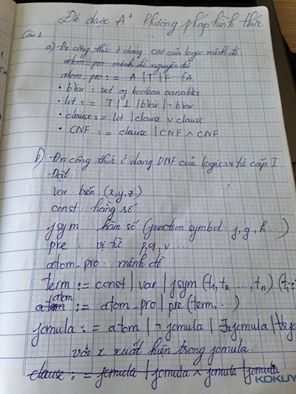 Để được A+ Phương pháp hình thức
Câu 1
a) Đn công thức ở dạng CNF của logic mệnh đề
atom_pro: mệnh đề nguyên tử
atom_pro := A | T | F
• bvar : set of boolean variables
• lit := T | ⊥ | bvar | ¬ bvar
• clause := lit | clause ∨ clause
• CNF := clause | CNF ∧ CNF
b) Đn công thức ở dạng DNF của logic vị từ cấp I
Đặt
var biến (x, y, z.)
const hằng số
fsym hàm số (function symbol f, g, h ...)
pre vị từ p, q, v ...
atom_pro. mệnh đề
term := const | var | fsym (t1, t2, ..., tn)
atom := atom_pro | pre (term, ...)
fomula := atom | ¬ fomula | ∃x fomula
với x xuất hiện trong fomula.
clause := fomula | fomula ∧ fomula | fomula
KOKUYO